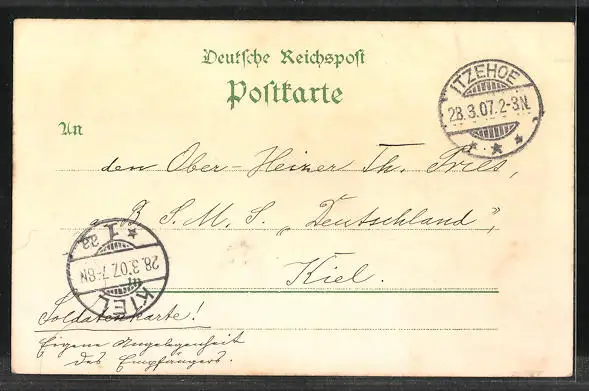 Deutsche Reichspost
Postkarte
An
ITZEHOE
28.3.07.2-3N.
den Ober-Heizer Th.
S. M. S. „Deutschland",
Kiel.
KIEL 1
28.3.07.7-8N
Soldatenkarte!
Eigene Angelegenheit
des Empfängers.